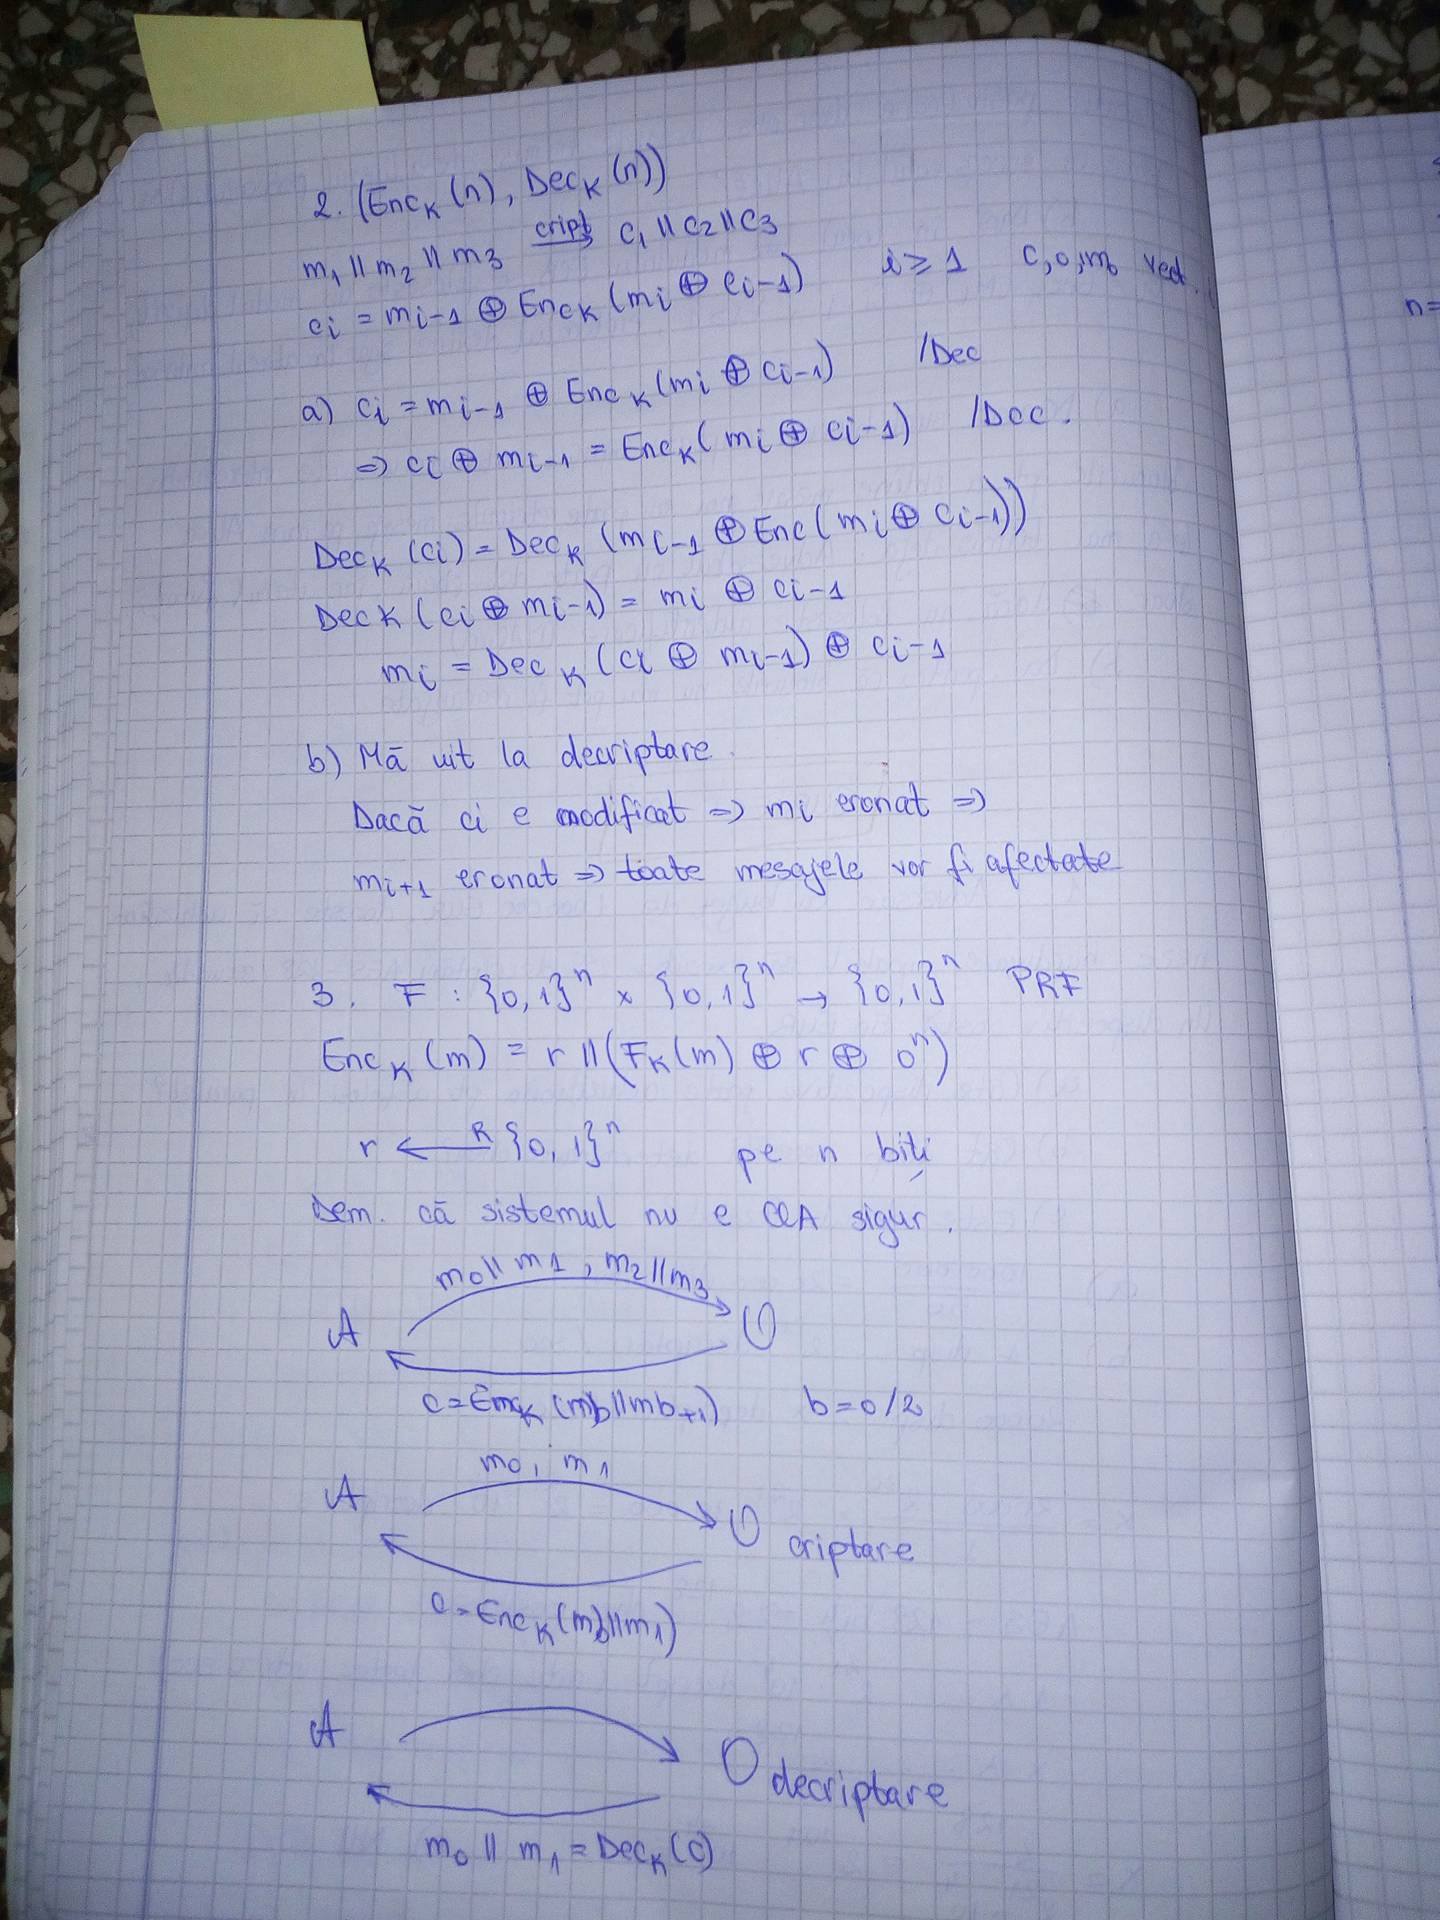 2. (Enc_K(n), Dec_K(n))
m_1 || m_2 || m_3 cript→ c_1 || c_2 || c_3
c_i = m_{i-1} ⊕ Enc_K(m_i ⊕ c_{i-1}) i ≥ 1
n=
a) c_i = m_{i-1} ⊕ Enc_K(m_i ⊕ c_{i-1}) /Dec
⇒ c_i ⊕ m_{i-1} = Enc_K(m_i ⊕ c_{i-1}) /Dec.
Dec_K(c_i) = Dec_K(m_{i-1} ⊕ Enc(m_i ⊕ c_{i-1}))
Dec_K(c_i ⊕ m_{i-1}) = m_i ⊕ c_{i-1}
m_i = Dec_K(c_i ⊕ m_{i-1}) ⊕ c_{i-1}
b) Mă uit la decriptare.
Dacă c_i e modificat ⇒ m_i eronat ⇒
m_{i+1} eronat ⇒ toate mesajele vor fi afectate
3. F : {0,1}^n × {0,1}^n → {0,1}^n PRF
Enc_K(m) = r || (F_K(m) ⊕ r ⊕ 0^n)
r ←R {0,1}^n pe n biți
Dem. că sistemul nu e CCA sigur.
m_0 || m_1, m_2 || m_3
A O
c = Enc_K(m_b || m_{b+1}) b = 0/2
m_0, m_1
A O criptare
c = Enc_K(m_b || m_1)
A O decriptare
m_0 || m_1 = Dec_K(c)